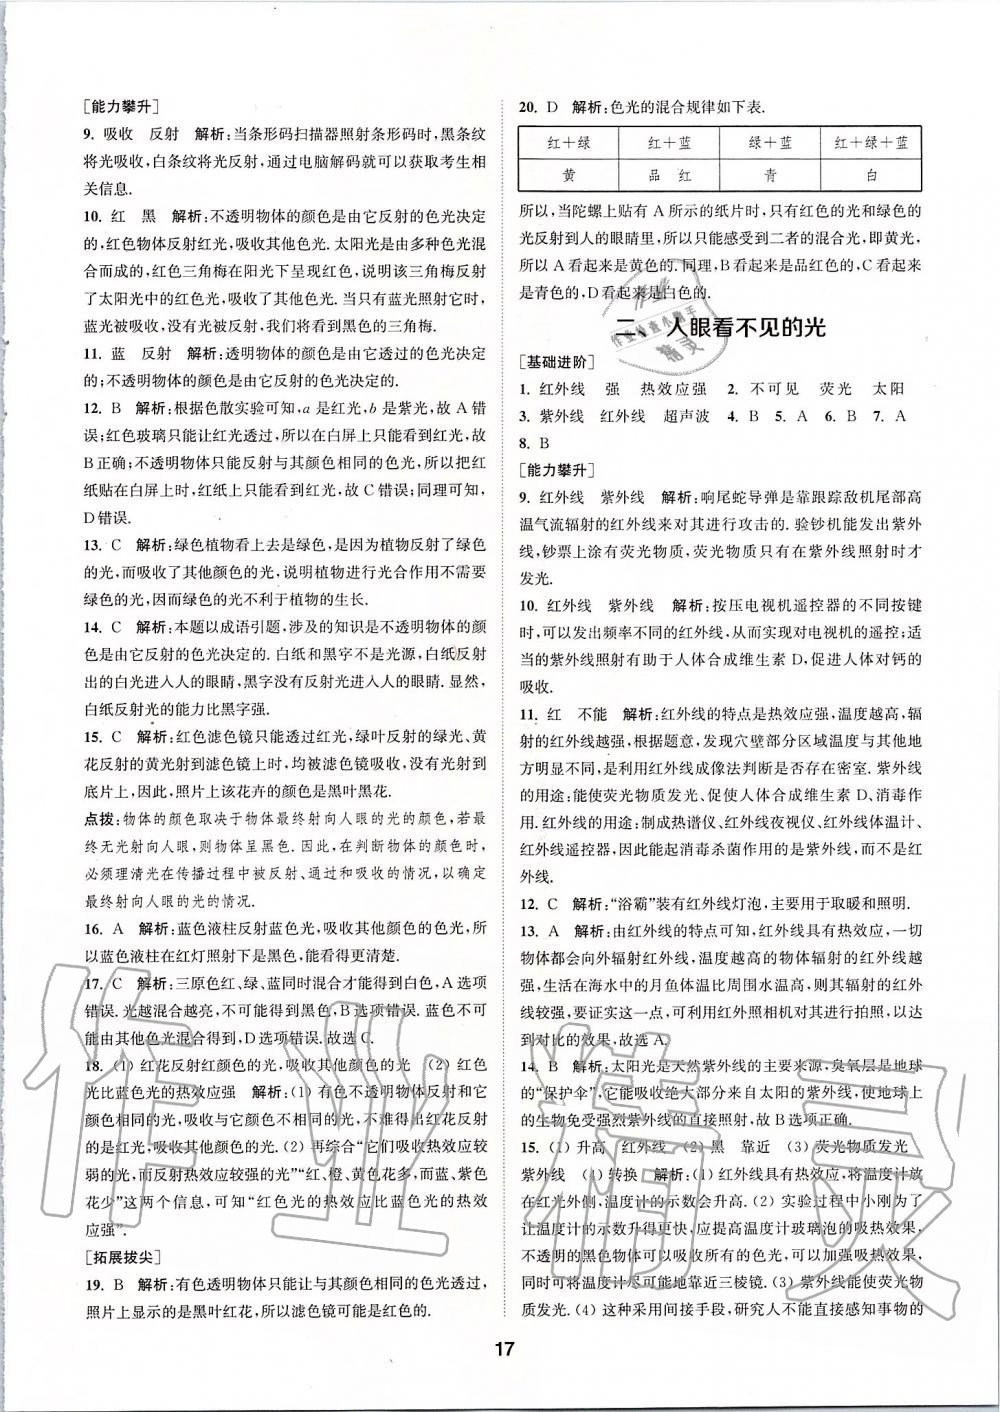 [能力攀升]
9. 吸收 反射 解析:当条形码扫描器照射条形码时,黑条纹
将光吸收,白条纹将光反射,通过电脑解码就可以获取考生相
关信息.
10. 红 黑 解析:不透明物体的颜色是由它反射的色光决定
的,红色物体反射红光,吸收其他色光. 太阳光是由多种色光混
合而成的,红色三角梅在阳光下呈现红色,说明该三角梅反射
了太阳光中的红色光,吸收了其他色光. 当只有蓝光照射它时,
蓝光被吸收,没有光反射,我们将看到黑色的三角梅.
11. 蓝 反射 解析:透明物体的颜色是由它透过的色光决定
的,不透明物体的颜色是由它反射的色光决定的.
12. B 解析:根据色散实验可知,a 是红光,b 是紫光,故 A 错
误;红色玻璃只能让红光透过,所以在白屏上只能看到红光,故
B 正确;不透明物体只能反射与其颜色相同的色光,所以把红
纸贴在白屏上时,红纸能看到红光,故 C 错误;同理可知,
D 错误.
13. C 解析:绿色植物看上去是绿色,是因为植物反射了绿色
的光,而吸收了其他颜色的光,说明植物进行光合作用不需要
绿色的光,因而绿色的光不利于植物的生长.
14. C 解析:本题以成语引题,涉及的知识是不透明物体的颜
色是由它反射的色光决定的. 白纸和黑字不是光源,白纸反射
出的白光进入人的眼睛,黑字没有光线进入人的眼睛. 显然,
白纸反射光的能力比黑字强.
15. C 解析:红色滤色镜只能透过红光,绿叶反射的绿光、黄
花反射的黄光射到滤色镜上时,均不能透过滤色镜,没有光射到
底片上,因此,照片上该花卉的颜色是黑叶黑花.
点拨:物体的颜色取决于物体最终射向人眼的光的颜色,若最
终无光射向人眼,则物体呈黑色. 因此,在判断物体的颜色时,
必须理清光在传播过程中被反射、通过和吸收的情况,以确定
最终射向人眼的光的情况.
16. A 解析:蓝色液柱反射蓝色光,吸收其他颜色的光,所
以蓝色液柱在红灯照射下是黑色,能看得更清楚.
17. C 解析:三原色红、绿、蓝同时混合才能得到白色,A 选项
错误. 光越混合越亮,不可得到黑色,B 选项错误. 蓝色不可能
由其他色光混合得到,D 选项错误. 故选 C.
18. (1) 红花反射红颜色的光,吸收其他颜色的光 (2) 红色
光比蓝色光的热效应强 解析:(1) 有色不透明物体反射和它
颜色相同的光,吸收与它颜色不同的光,不难得出红花反射
的是红光,吸收其他颜色的光.(2) 再综合“它们吸收热效应较
弱的光,而反射热效应较强的光”“红、橙、黄色花多,而蓝、紫色
花少”这两个信息,可知“红色光的热效应比蓝色光的热效
应强”.
[拓展拔尖]
19. B 解析:有色透明物体只能让与其颜色相同的色光透过,
照片上显示的是黑叶红花,所以滤色镜可能是红色的.
20. D 解析:色光的混合规律如下表.
红+绿 红+蓝 绿+蓝 红+绿+蓝
黄 品 红 青 白
所以,当陀螺上贴有 A 所示的纸片时,只有红色的光和绿色的
光反射到人的眼睛里,所以只能感受到二者的混合光,即黄光,
所以 A 看起来是黄色的. 同理,B 看起来是品红色的,C 看起来
是青色的,D 看起来是白色的.
二、 人眼看不见的光
[基础进阶]
1. 红外线 强 热效应强 2. 不可见 荧光 太阳
3. 紫外线 红外线 超声波 4. B 5. A 6. B 7. A
8. B
[能力攀升]
9. 红外线 紫外线 解析:响尾蛇导弹是靠跟踪敌机尾部高
温气流辐射的红外线来对其进行攻击的. 验钞机能发出紫外
线,钞票上涂有荧光物质,荧光物质只有在紫外线照射时才
发光.
10. 红外线 紫外线 解析:按压电视机遥控器的不同按键
时,可以发出频率不同的红外线,从而实现对电视机的遥控;适
当的紫外线照射有助于人体合成维生素 D,促进人体对钙的
吸收.
11. 红 不能 解析:红外线的特点是热效应强,温度越高,辐
射的红外线越强,根据题意,发现穴壁部分区域温度与其他地
方明显不同,是利用红外线成像法判断是否存在密室. 紫外线
的用途:能使荧光物质发光、促使人体合成维生素 D、消毒作
用. 红外线的用途:制成热谱仪、红外线夜视仪、红外线体温计、
红外线遥控器,因此能起消毒杀菌作用的是紫外线,而不是红
外线.
12. C 解析:“浴霸”装有红外线灯泡,主要用于取暖和照明.
13. A 解析:由红外线的特点可知,红外线具有热效应,一切
物体都会向外辐射红外线,温度越高的物体辐射的红外线越
强,生活在海水中的月鱼体温比周围水温高,则其辐射的红外
线较强,要证实这一点,可利用红外照相机对其进行拍照,以达
到对比的效果,故选 A.
14. B 解析:太阳光是天然紫外线的主要来源,臭氧层是地球
的“保护伞”,它能吸收绝大部分来自太阳的紫外线,使地球上
的生物免受强烈紫外线的直接照射,故 B 选项正确.
15. (1) 升高 红外线 (2) 黑 靠近 (3) 荧光物质发光
紫外线 (4) 转换 解析:(1) 红外线具有热效应,将温度计放
在红光外侧,温度计的示数会升高.(2) 实验过程中小刚为了
让温度计的示数升得更快,应提高温度计玻璃泡的吸热效果,
不透明的黑色物体可以吸收所有的色光,可以吸收更多的热,
同时可将温度计尽可能地靠近三棱镜.(3) 紫外线能使荧光物
质发光.(4) 这种采用间接手段,研究人不能直接感知事物的
17
作业精灵